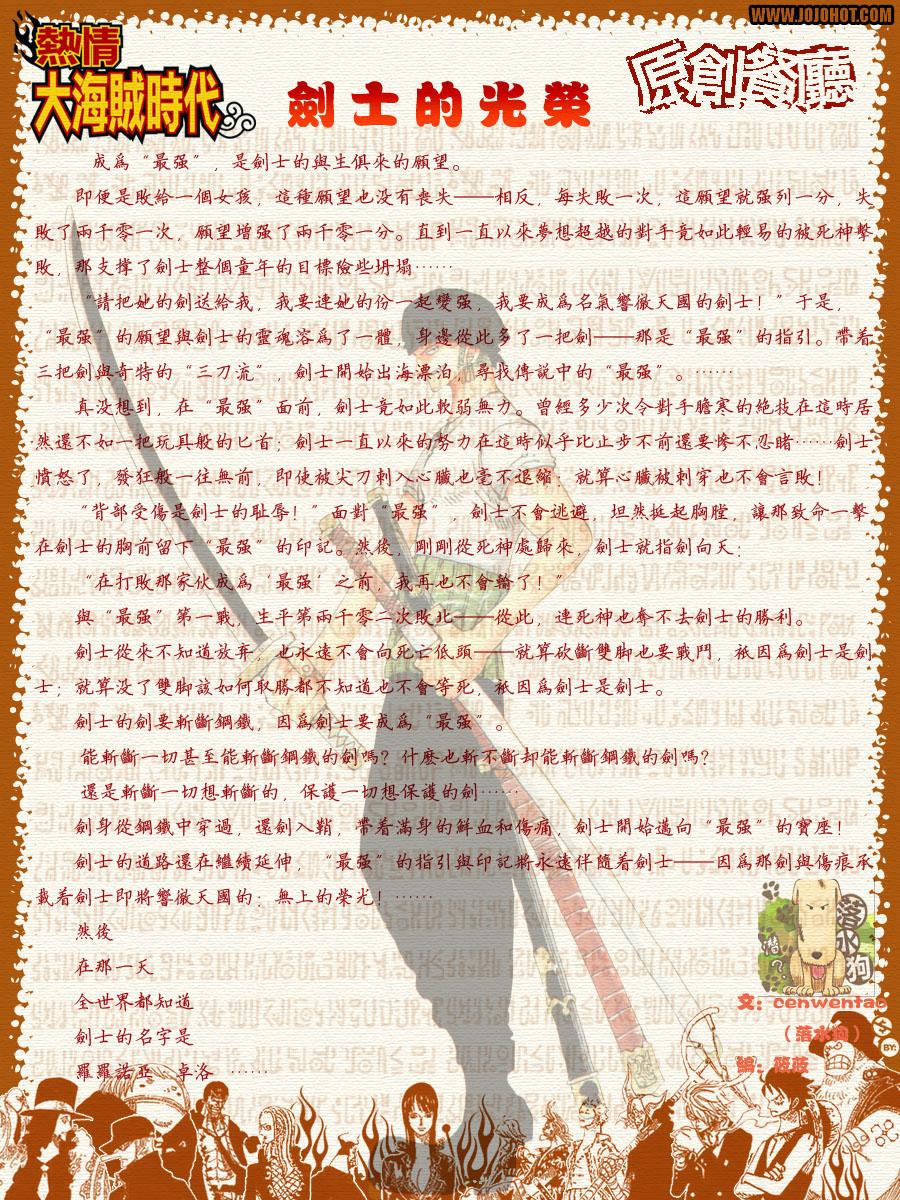 WWW.JOJOHOT.COM
熱情
大海賊時代
劍士的光榮
原創餐廳
成爲“最强”，是劍士的與生俱來的願望。
即便是敗給一個女孩，這種願望也没有喪失——相反，每失敗一次，這願望就强列一分，失
敗了兩千零一次，願望增强了兩千零一分。直到一直以來夢想超越的對手竟如此輕易的被死神擊
敗，那支撑了劍士整個童年的目標險些坍塌……
“請把她的劍送給我，我要連她的份一起變强，我要成爲名氣響徹天國的劍士！”于是，
“最强”的願望與劍士的靈魂溶爲了一體，身邊從此多了一把劍——那是“最强”的指引。帶着
三把劍與奇特的“三刀流”，劍士開始出海漂泊，尋找傳說中的“最强”。……
真没想到，在“最强”面前，劍士竟如此軟弱無力。曾經多少次令對手膽寒的絶技在這時居
然還不如一把玩具般的匕首；劍士一直以來的努力在這時似乎比止步不前還要慘不忍睹……劍士
憤怒了，發狂般一往無前，即使被尖刀刺入心臟也毫不退縮：就算心臟被刺穿也不會言敗！
“背部受傷是劍士的耻辱！”面對“最强”，劍士不會逃避，坦然挺起胸膛，讓那致命一擊
在劍士的胸前留下“最强”的印記。然後，剛剛從死神處歸來，劍士就指劍向天：
“在打敗那家伙成爲‘最强’之前，我再也不會輸了！”
與“最强”第一戰，生平第兩千零二次敗北——從此，連死神也奪不去劍士的勝利。
劍士從來不知道放弃，也永遠不會向死亡低頭——就算砍斷雙脚也要戰鬥，衹因爲劍士是劍
士；就算没了雙脚該如何取勝都不知道也不會等死，衹因爲劍士是劍士。
劍士的劍要斬斷鋼鐵，因爲劍士要成爲“最强”。
能斬斷一切甚至能斬斷鋼鐵的劍嗎？什麽也斬不斷却能斬斷鋼鐵的劍嗎？
還是斬斷一切想斬斷的，保護一切想保護的劍……
劍身從鋼鐵中穿過，還劍入鞘，帶着滿身的鮮血和傷痛，劍士開始邁向“最强”的寶座！
劍士的道路還在繼續延伸，“最强”的指引與印記將永遠伴隨着劍士——因爲那劍與傷痕承
載着劍士即將響徹天國的：無上的榮光！……
然後
在那一天
全世界都知道
劍士的名字是
羅羅諾亞 卓洛 ……
落水狗
潜？
文：cenwentao
（落水狗）
編：筱薇
BY: